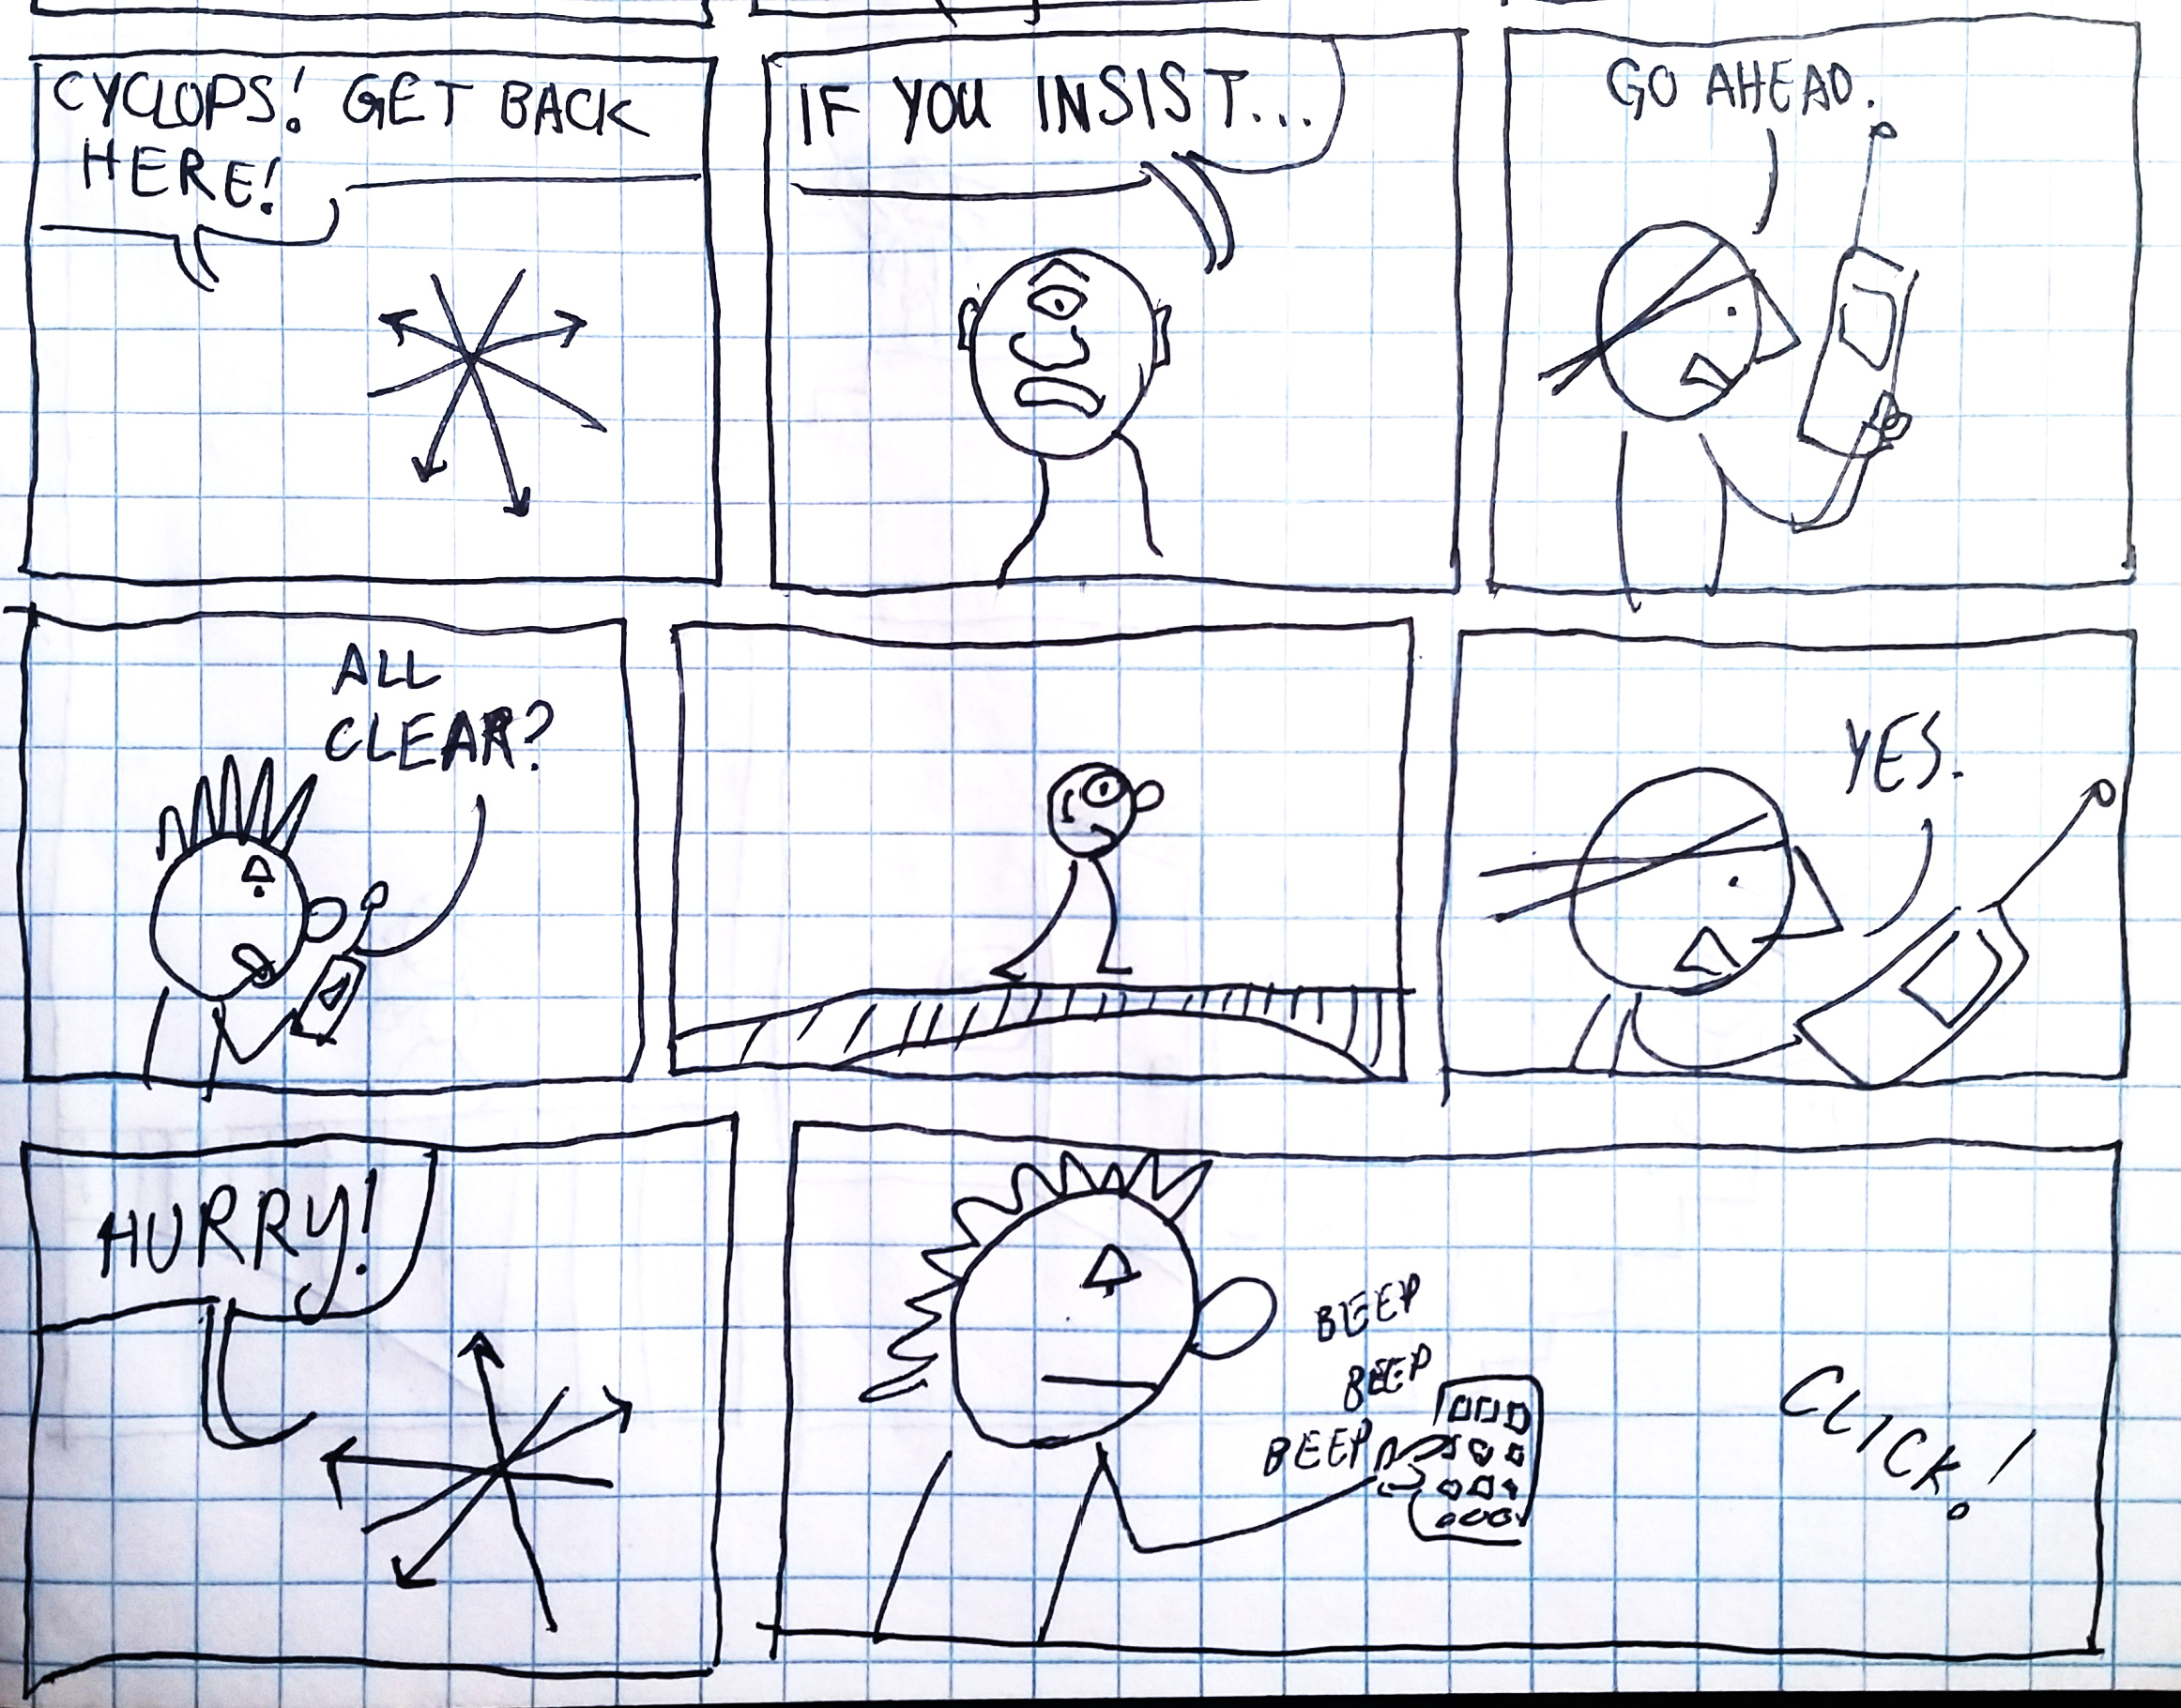 CYCLOPS! GET BACK
HERE!
IF YOU INSIST...
GO AHEAD.
ALL
CLEAR?
YES.
HURRY!
BEEP
BEEP
BEEP
CLICK!